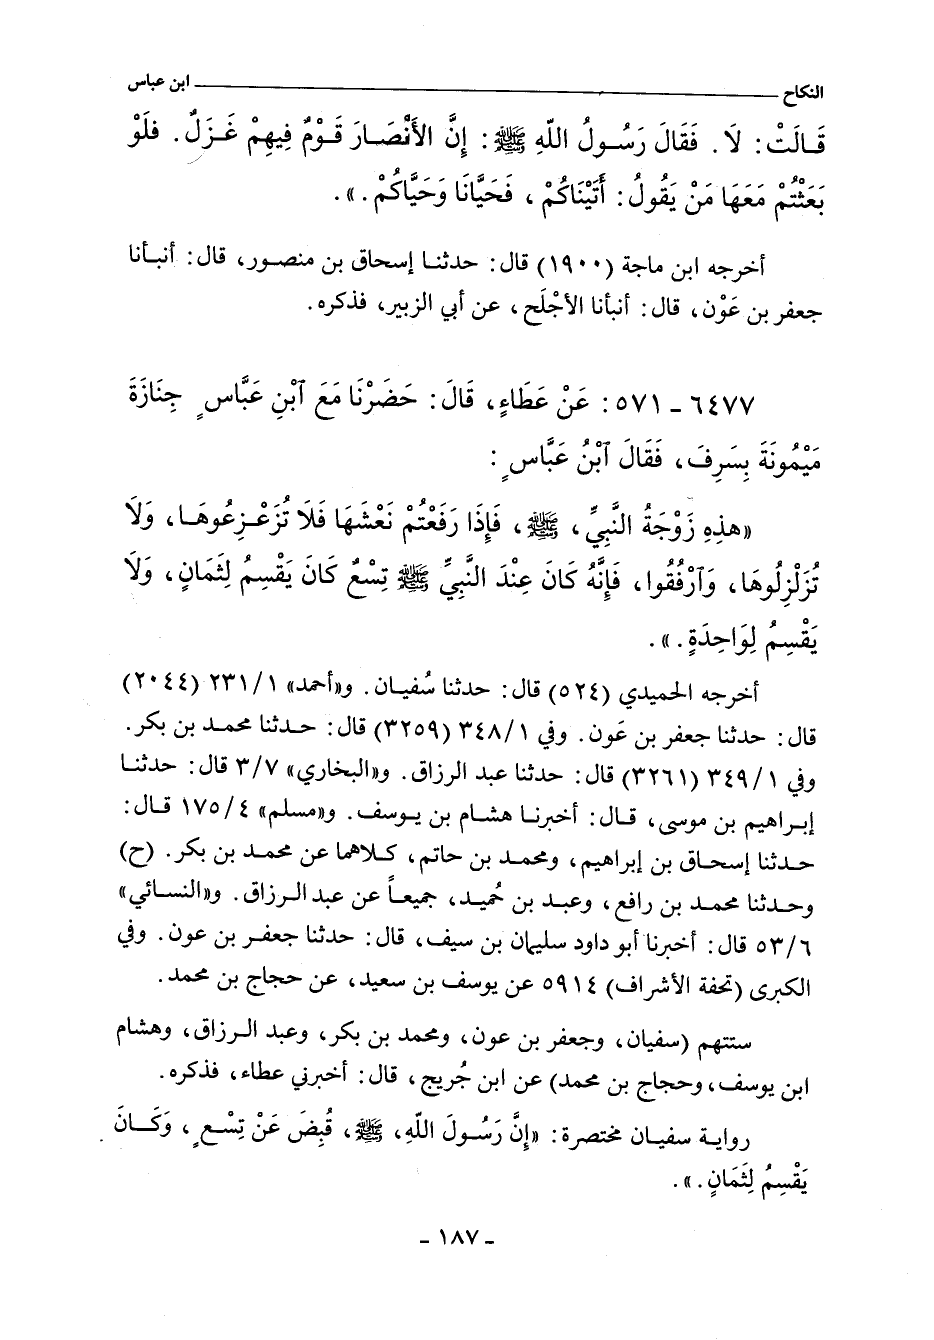 النكاح ــــــ ابن عباس
قَالَتْ: لَا. فَقَالَ رَسُولُ اللّهِ ﷺ: إِنَّ الأَنْصَارَ قَوْمٌ فِيهِمْ غَزَلٌ. فَلَوْ
بَعَثْتُمْ مَعَهَا مَنْ يَقُولُ: أَتَيْنَاكُمْ، فَحَيَّانَا وَحَيَّاكُمْ.».
أخرجه ابن ماجة (١٩٠٠) قال: حدثنا إسحاق بن منصور، قال: أنبأنا
جعفر بن عَوْن، قال: أنبأنا الأجْلَح، عن أبي الزبير، فذكره.
٦٤٧٧ ـ ٥٧١: عَنْ عَطَاءٍ، قَالَ: حَضَرْنَا مَعَ ٱبْنِ عَبَّاسٍ جِنَازَةَ
مَيْمُونَةَ بِسَرِفَ، فَقَالَ ٱبْنُ عَبَّاسٍ:
«هذِهِ زَوْجَةُ النَّبِيِّ، ﷺ، فَإِذَا رَفَعْتُمْ نَعْشَهَا فَلَا تُزَعْزِعُوهَا، وَلَا
تُزَلْزِلُوهَا، وَٱرْفُقُوا، فَإِنَّهُ كَانَ عِنْدَ النَّبِيِّ ﷺ تِسْعٌ كَانَ يَقْسِمُ لِثَمَانٍ، وَلَا
يَقْسِمُ لِوَاحِدَةٍ.».
أخرجه الحميدي (٥٢٤) قال: حدثنا سُفيان. و«أحمد» ٢٣١/١ (٢٠٤٤)
قال: حدثنا جعفر بن عَون. وفي ٣٤٨/١ (٣٢٥٩) قال: حدثنا محمد بن بكر.
وفي ٣٤٩/١ (٣٢٦١) قال: حدثنا عبد الرزاق. و«البخاري» ٣/٧ قال: حدثنا
إبراهيم بن موسى، قال: أخبرنا هشام بن يوسف. و«مسلم» ١٧٥/٤ قال:
حدثنا إسحاق بن إبراهيم، ومحمد بن حاتم، كلاهما عن محمد بن بكر. (ح)
وحدثنا محمد بن رافع، وعبد بن حُميد، جميعاً عن عبد الرزاق. و«النسائي»
٥٣/٦ قال: أخبرنا أبو داود سليمان بن سيف، قال: حدثنا جعفر بن عون. وفي
الكبرى (تحفة الأشراف) ٥٩١٤ عن يوسف بن سعيد، عن حجاج بن محمد.
ستتهم (سفيان، وجعفر بن عون، ومحمد بن بكر، وعبد الرزاق، وهشام
ابن يوسف، وحجاج بن محمد) عن ابن جُريج، قال: أخبرني عطاء، فذكره.
رواية سفيان مختصرة: «إِنَّ رَسُولَ اللّهِ، ﷺ، قُبِضَ عَنْ تِسْعٍ، وَكَانَ
يَقْسِمُ لِثَمَانٍ.».
ـ ١٨٧ ـ